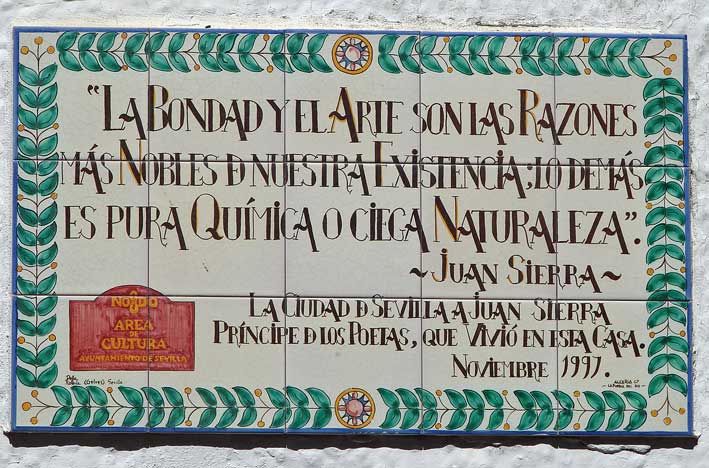 "LA BONDAD Y EL ARTE SON LAS RAZONES
MÁS NOBLES D NUESTRA EXISTENCIA; LO DEMÁS
ES PURA QUÍMICA O CIEGA NATURALEZA".
~JUAN SIERRA~
LA CIUDAD D SEVILLA A JUAN SIERRA
PRÍNCIPE D LOS POETAS, QUE VIVIÓ EN ESTA CASA.
NOVIEMBRE 1997.
NO8DO
AREA
DE
CULTURA
AYUNTAMIENTO DE SEVILLA
(Gelves) Sevilla